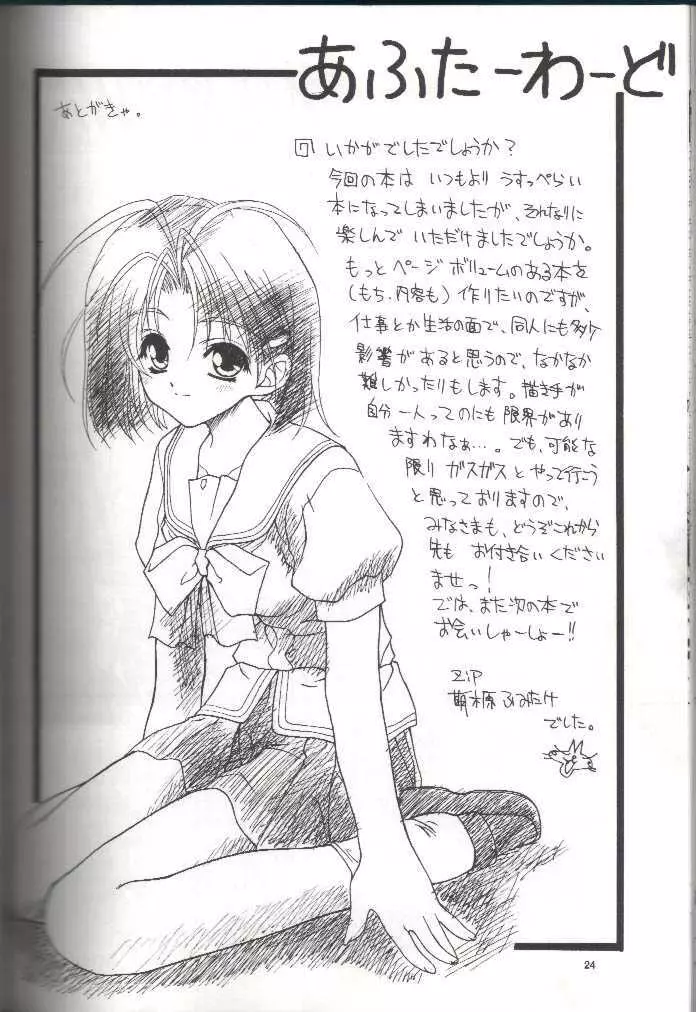 あふたーわーど
あとがきゃ。
いかがでしたでしょうか？
今回の本は いつもより うすっぺらい
本になってしまいましたが、それなりに
楽しんで いただけましたでしょうか。
もっと ページ ボリュームのある本を
（もち、内容も）作りたいのですが、
仕事とか生活の面で、同人にも多々
影響があると思うので、なかなか
難しかったりもします。描き手が
自分一人ってのにも 限界があり
ますわなぁ…。でも、可能な
限り ガスガスと やって行こう
と思っておりますので、
みなさまも、どうぞこれから
先も お付き合いください
ませっ！
では、また次の本で
お会いしゃーしょー!!
ZIP
萌木原 ふみたけ
でした。
24